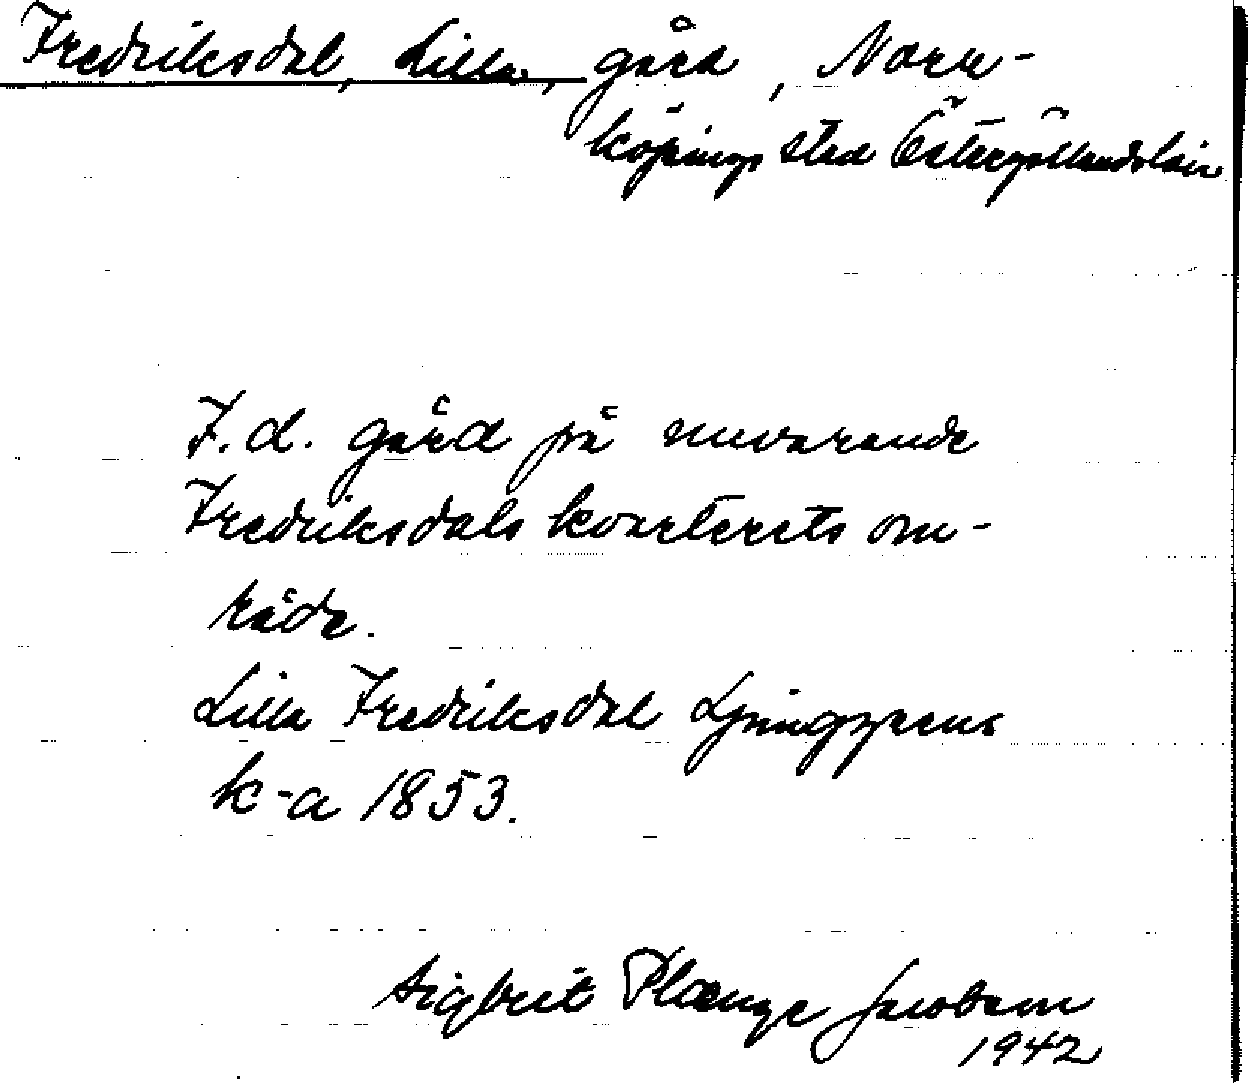 Fredriksdal, Lilla, gård, Norr-
köpings stad Östergötlands län
F.d. gård på nuvarande
Fredriksdals kvarterets om-
råde.
Lilla Fredriksdal Ljunggrens
k-a 1853.
Sigbrit Plænge Jacobson
1942